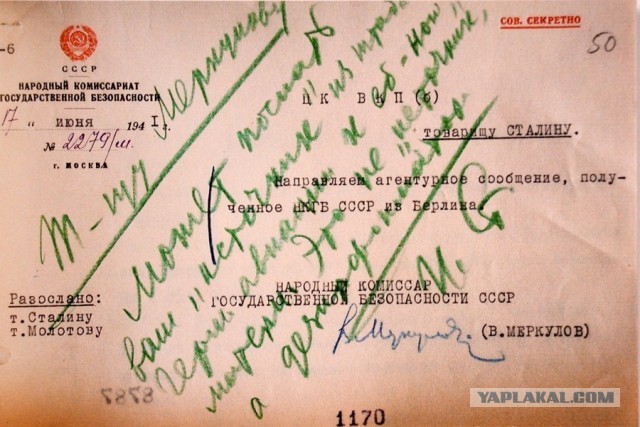 СОВ. СЕКРЕТНО
50
-6
СССР
НАРОДНЫЙ КОМИССАРИАТ
ГОСУДАРСТВЕННОЙ БЕЗОПАСНОСТИ
17 " июня 1941 г.
№ 2279/м.
г. МОСКВА
ЦК ВКП(б)
товарищу СТАЛИНУ.
Направляем агентурное сообщение, полу-
ченное НКГБ СССР из Берлина.
НАРОДНЫЙ КОМИССАР
ГОСУДАРСТВЕННОЙ БЕЗОПАСНОСТИ СССР
(В.МЕРКУЛОВ)
Разослано:
т.Сталину
т.Молотову
Т-щу Меркулову
Может послать
ваш "источник" из штаба
герм. авиации к еб-ной
матери. Это не "источник",
а дезинформатор.
И. Ст
8787
1170
YAPLAKAL.COM